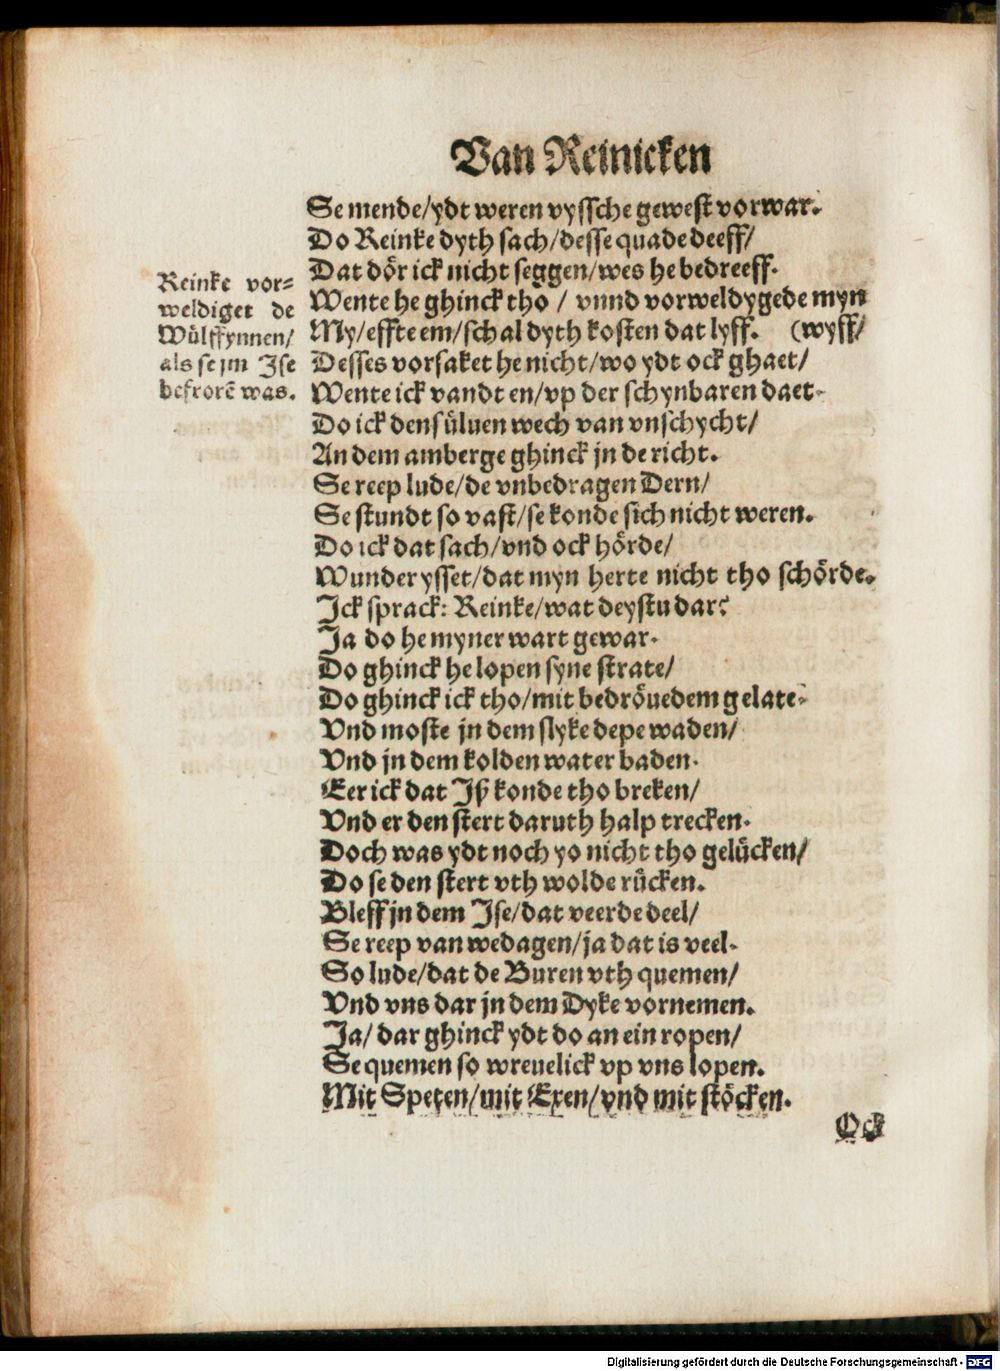 Van Reinicken
Se mende/ydt weren vyssche gewest vorwar.
Do Reinke dyth sach/desse quade deeff/
Dat dör ick nicht seggen/wes he bedreeff.
Wente he ghinck tho / vnnd vorweldygede myn
My/effte em/schal dyth kosten dat lyff. (wyff/
Desses vorsaket he nicht/wo ydt ock ghaet/
Wente ick vandt en/vp der schynbaren daet.
Do ick densüluen wech van vnschycht/
An dem amberge ghinck jn de richt.
Se reep lude/de vnbedragen Dern/
Se stundt so vast/se konde sich nicht weren.
Do ick dat sach/vnd ock hörde/
Wunder ysset/dat myn herte nicht tho schörde.
Ick sprack: Reinke/wat deystu dar?
Ja do he myner wart gewar.
Do ghinck he lopen syne strate/
Do ghinck ick tho/mit bedröuedem gelate.
Vnd moste jn dem slyke depe waden/
Vnd jn dem kolden water baden.
Eer ick dat Jß konde tho breken/
Vnd er den stert daruth halp trecken.
Doch was ydt noch yo nicht tho gelücken/
Do se den stert vth wolde rücken.
Bleff jn dem Jse/dat veerde deel/
Se reep van wedagen/ja dat is veel.
So lude/dat de Buren vth quemen/
Vnd vns dar jn dem Dyke vornemen.
Ja/ dar ghinck ydt do an ein ropen/
Se quemen so wreuelick vp vns lopen.
Mit Speten/mit Exen/vnd mit stöcken.
Ock
Reinke vor-
weldiget de
Wülffynnen/
als se jm Jse
befrorē was.
Digitalisierung gefördert durch die Deutsche Forschungsgemeinschaft - DFG